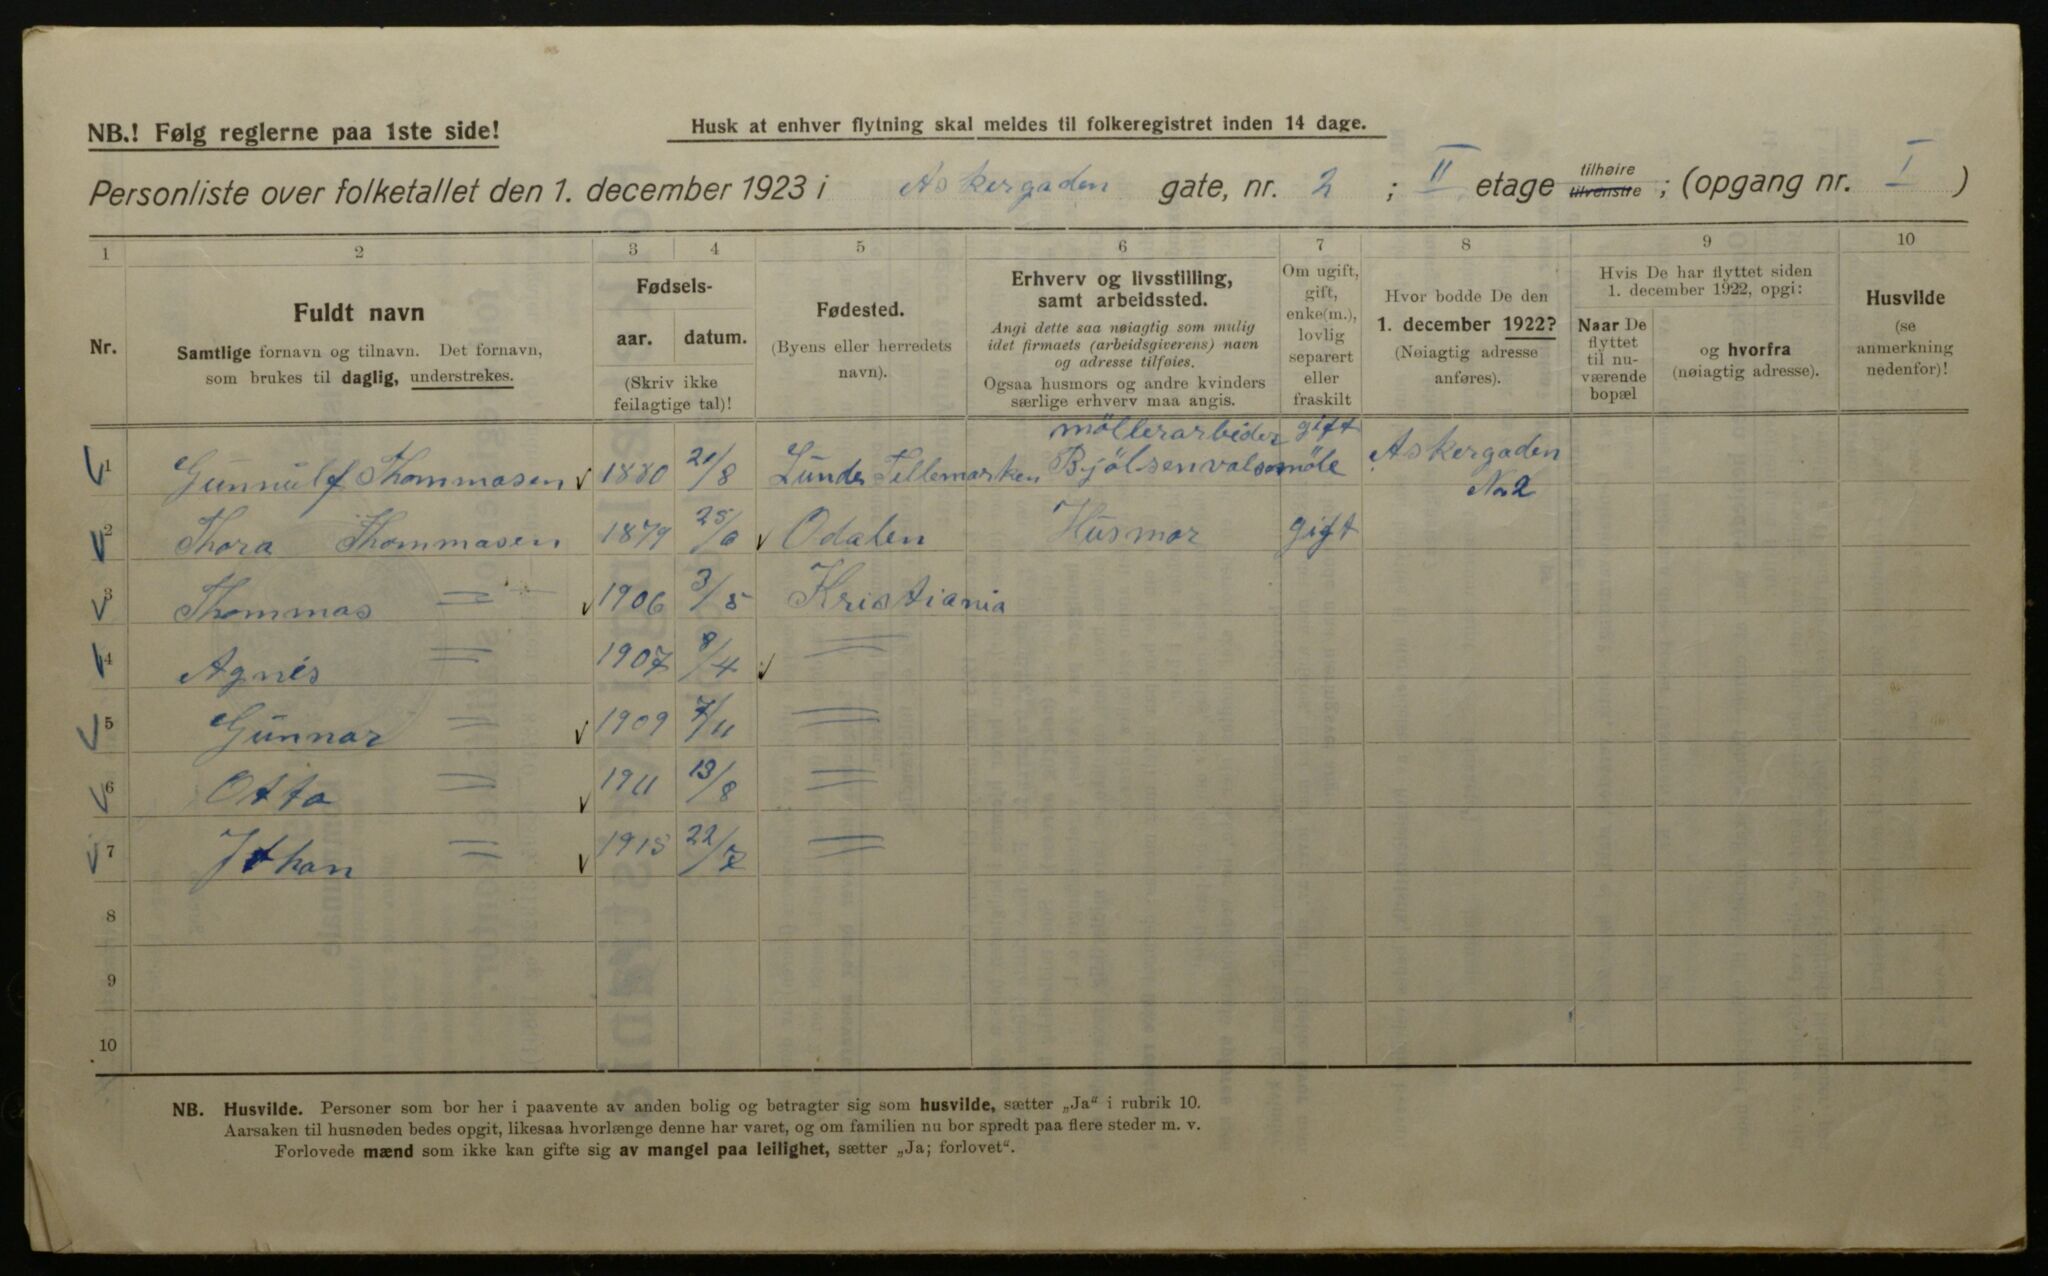 NB.! Følg reglerne paa 1ste side!
Husk at enhver flytning skal meldes til folkeregistret inden 14 dage.
Personliste over folketallet den 1. december 1923 i Askergaden gate, nr. 2 ; II etage tilhøire tilvenstre ; (opgang nr. I )
1 2 3 4 5 6 7 8 9 10
Nr.
Fuldt navn
Samtlige fornavn og tilnavn. Det fornavn,
som brukes til daglig, understrekes.
Fødsels-
aar. datum.
(Skriv ikke
feilagtige tal)!
Fødested.
(Byens eller herredets
navn).
Erhverv og livsstilling,
samt arbeidssted.
Angi dette saa nøiagtig som mulig
idet firmaets (arbeidsgiverens) navn
og adresse tilføies.
Ogsaa husmors og andre kvinders
særlige erhverv maa angis.
Om ugift,
gift,
enke(m.),
lovlig
separert
eller
fraskilt
Hvor bodde De den
1. december 1922?
(Nøiagtig adresse
anføres).
Hvis De har flyttet siden
1. december 1922, opgi:
Naar De
flyttet
til nu-
værende
bopæl
og hvorfra
(nøiagtig adresse).
Husvilde
(se
anmerkning
nedenfor)!
møllerarbeider gift
1 Gunnulf Thommasen 1880 21/8 Lunde Tellemarken Bjölsenvalsemöle Askergaden
No 2
2 Thora Thommasen 1879 25/6 Odalen Husmor gift
3 Thommas = 1906 3/5 Kristiania
4 Agnes = 1907 8/4 =
5 Gunnar = 1909 7/11 =
6 Otto = 1911 13/8 =
7 Johan = 1915 22/7 =
8
9
10
NB. Husvilde. Personer som bor her i paavente av anden bolig og betragter sig som husvilde, sætter „Ja“ i rubrik 10.
Aarsaken til husnøden bedes opgit, likesaa hvorlænge denne har varet, og om familien nu bor spredt paa flere steder m. v.
Forlovede mænd som ikke kan gifte sig av mangel paa leilighet, sætter „Ja; forlovet“.